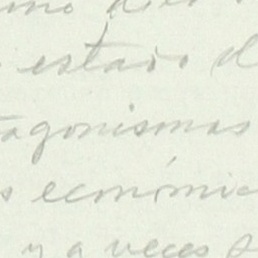 estado d
tagonismos
s económic
y a veces s